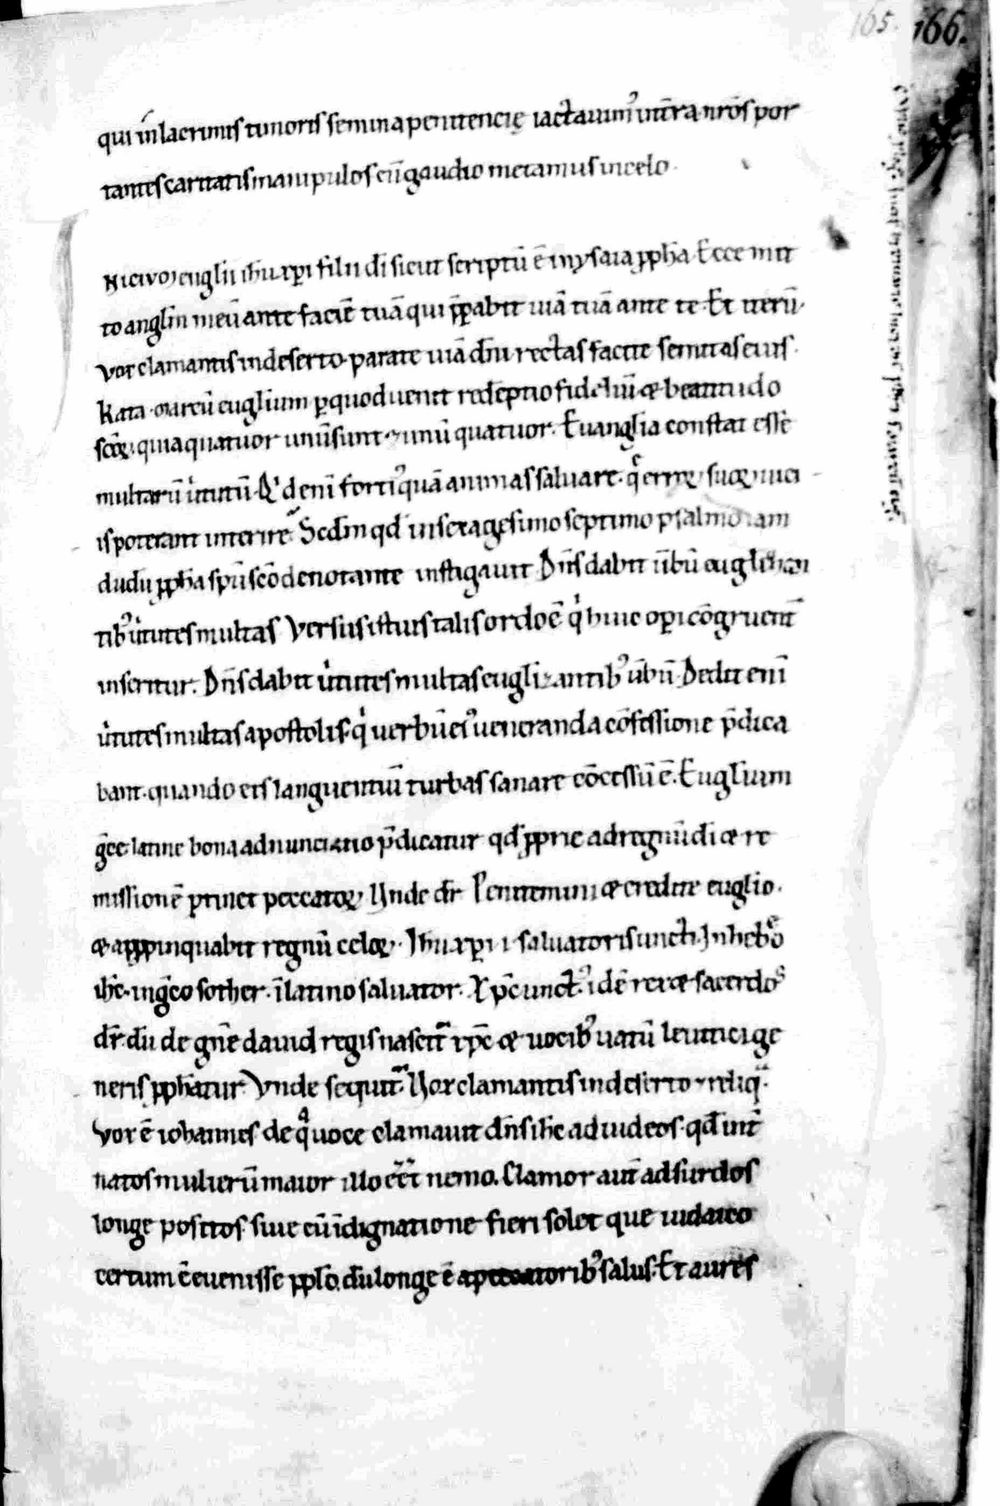 165. 166.
qui in lacrimis timoris semina penitencię iactauim᷒ int̄ra nr̄os por
tantes caritatis manipulos cū gaudio metamus in celo.
Niciū euglii ihu xp̄i filii di sicut scriptū ē in ysaia ppha. Ecce mit
to anglm meū ante faciē tuā qui pparabit uiā tuā ante te. Et iterū.
Vox clamantis in deserto. parate uiā dn̄i rectas facite semitas eius.
Kata marcū euglium p quod uenit redēptio fidelium & beatitudo
scōꝝ. quia quatuor unū sunt & unū quatuor. Euanglia constat esse
multarū uirtutū. Qd eni forti᷒ quā animas saluare. q̄ errorꝝ suoꝝ uici
is poterant interire. Sed in qd in sexagesimo septimo psalmo iam
dudū ppha spū scō denotante instigauit. Dn̄s dabit ūbū euglizan
tib᷒ uirtutes multas. Versus istius talis ordo ē q̇ huic opi cōgruent̄
inseritur. Dn̄s dabit uirtutes multas euglizantib᷒ ūbū. Dedit eni
uirtutes multas apostolis. q̇ uerbū ei᷒ ueneranda cōfessione p̄dica
bant. quando eis languentiū turbas sanare cōcessū ē. Euglium
gce. latine bona adnunciatio p̄dicatur qd pprie ad regnū di & re
missionē ptinet peccatoꝝ. Unde dr̄ Penitemini & credite euglio.
& appinquabit regnū celoꝝ. Ihu xp̄i .i. saluatoris uncti. In hebreo
ihc. in gco sother. ī latino saluator. Xpc unct᷒. idē rex & sacerdos
dr̄. dū de gn̄e dauid regis nascit̄ xpc & uocib᷒ uatū leuitici ge
neris pphatur. Vnde sequit̄. Vox clamantis in deserto & reliq̄.
Vox ē iohannes de q̄ uoce clamauit dn̄s ihc ad iudeos. qd int̄
natos mulierū maior illo eēt nemo. Clamor aut̄ ad surdos
longe positos. siue cū īdignatione fieri solet que iudaico
certum ē euenisse pplo. dū longe ē a peccatorib᷒ salus. Et aures